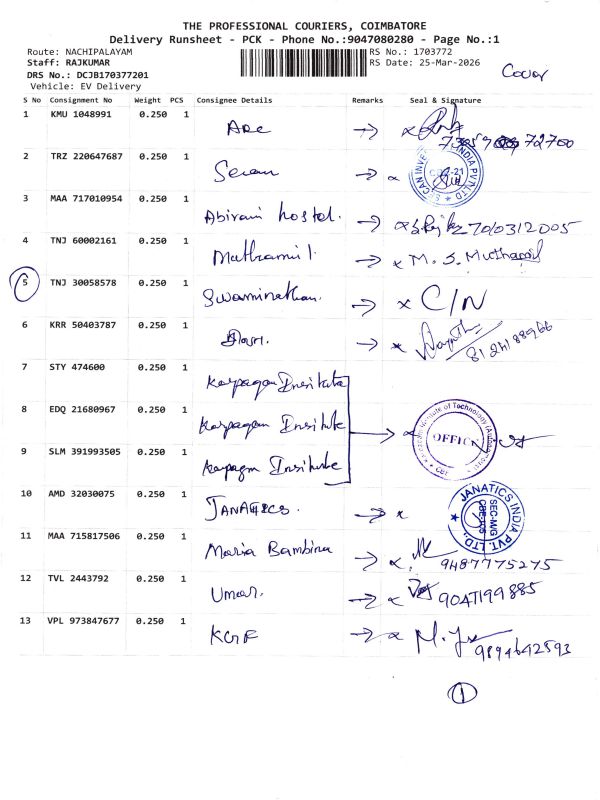 THE PROFESSIONAL COURIERS, COIMBATORE
Delivery Runsheet - PCK - Phone No.:9047080280 - Page No.:1
Route: NACHIPALAYAM
RS No.: 1703772
Staff: RAJKUMAR
RS Date: 25-Mar-2026
Cover
DRS No.: DCJB170377201
Vehicle: EV Delivery
S No Consignment No Weight PCS Consignee Details Remarks Seal & Signature
1 KMU 1048991 0.250 1
2 TRZ 220647687 0.250 1
3 MAA 717010954 0.250 1 Abirami hostel. 7010312005
4 TNJ 60002161 0.250 1 Muthamil. M. S. Muthamil
5 TNJ 30058578 0.250 1 Swaminathan. C/N
6 KRR 50403787 0.250 1 Hari. 8124188966
7 STY 474600 0.250 1 Karpagam Institute
8 EDQ 21680967 0.250 1 Karpagam Institute OFFICE
9 SLM 391993505 0.250 1 Karpagam Institute
10 AMD 32030075 0.250 1 JANATICS. JANATICS INDIA PVT. LTD.,
11 MAA 715817506 0.250 1 Maria Bambina 9487775275
12 TVL 2443792 0.250 1 Umar. 9047199885
13 VPL 973847677 0.250 1 KGF 9894642593
1